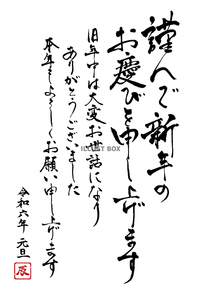 謹んで新年の
お慶びを申し上げます
旧年中は大変お世話になり
ありがとうございました
本年もよろしくお願い申し上げます
令和六年 元旦
辰
ILLUST BOX